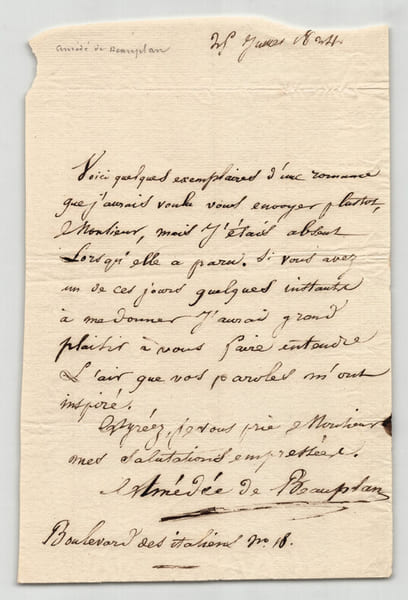 amédé de Beauplan
25 1824.
Voici quelques exemplaires d'une romance
que j'aurais voulu vous envoyer plustot,
Monsieur, mais j'étais absent
Lorsqu'elle a paru. Si vous avez
un de ces jours quelques instants
à me donner j'aurai grand
plaisir à vous faire entendre
L'air que vos paroles m'ont
inspiré.
Agréez, je vous prie Monsieur
mes salutations empressées.
Amédée de Beauplan
Boulevard des italiens no. 18.